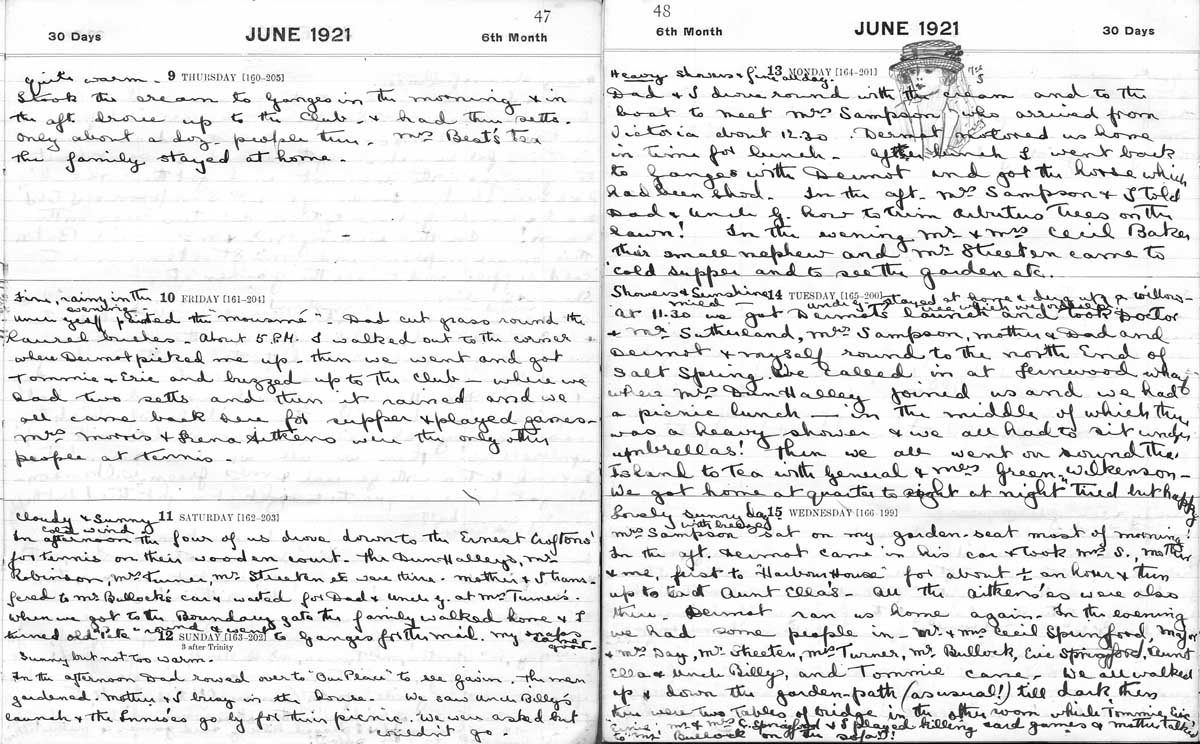 47
30 Days JUNE 1921 6th Month
quite warm. 9 THURSDAY [160-205]
I took the cream to Ganges in the morning & in
the aft. drove up to the Club & had three setts.
only about a doz. people there. Mrs Best's tea
the family stayed at home.
Fine, rainy in the evening 10 FRIDAY [161-204]
painted the "             ". Dad cut grass round the
laurel bushes. About 5 P.M. I walked out to the corner
where Dermot picked me up - then we went and got
Tommie & Eric and buzzed up to the Club - where we
had two setts and then it rained and we
all came back here for supper & played games -
Mrs Morris & Irena Aitkens were the only other
people at tennis.
Cloudy & Sunny cold wind 11 SATURDAY [162-203]
In afternoon the four of us drove down to the Ernest Croftons'
for tennis on their wooden court. The Dun Halleys, Mr
Robinson, Mrs Turner, Mr Streeten etc were there. Mother & I trans-
fered to Mr Bullock's car & waited for Dad & Uncle G. at Mrs Turner's.
When we got to the Boundary gate the family walked home & I
turned old "Pete" round & went to Ganges for the mail. My
12 SUNDAY [163-202]
3 after Trinity
Sunny but not too warm.
In the afternoon Dad rowed over to "Our Place" to see Gavin. The men
gardened. Mother & I busy in the house. We saw Uncle Billy's
launch & the Inneses go by for their picnic. We were asked but
couldn't go.
48
6th Month JUNE 1921 30 Days
Heavy showers & fine all day. 13 MONDAY [164-201]
Dad & I drove round with the cream and to the
boat to meet Mrs Sampson who arrived from
Victoria about 12.30. Dermot motored us home
in time for lunch. After lunch I went back
to Ganges with Dermot and got the horse which
had been shod. In the aft. Mrs Sampson & I told
Dad & Uncle G. how to trim Arbutus Trees on the
lawn! In the evening Mr & Mrs Cecil Baker
their small nephew and Mr Streeten came to
cold supper and to see the garden etc.
Showers & Sunshine mixed - 14 TUESDAY [165-200] Uncle G. stayed at home & dug up a willow-tree which we                
At 11.30 we got Dermot's launch and took Doctor
& Mrs Sutherland, Mrs Sampson, mother & Dad and
Dermot & myself round to the North End of
Salt Spring. We called in at Fernwood wharf
where Mrs Dun Halley joined us and we had
a picnic lunch - in the middle of which there
was a heavy shower & we all had to sit under
umbrellas! Then we all went on round the
Island to tea with General & Mrs Green Wilkenson -
We got home at quarter to eight at night "Tired but happy"
Lovely sunny day with breeze 15 WEDNESDAY [166-199]
Mrs Sampson sat on my garden-seat most of morning!
In the aft. Dermot came in his car & took Mrs S., mother
& me, first to "Harbour House" for about ½ an hour & then
up to tea at Aunt Ella's - all the Aitkens'es were also
there. Dermot ran us home again. In the evening
we had some people in - Mr & Mrs Cecil Springford, Major
& Mrs Day, Mr Streeten, Mrs Turner, Mr Bullock, Eric Springford, Aunt
Ella & Uncle Billy, and Tommie came. We all walked
up & down the garden-path (as usual!) till dark then
there were two tables of bridge in the other room while Tommie, Eric,
Mr & Mrs C. Springford & I played killing card games & mother talked
to Mr Bullock on the sofa!!